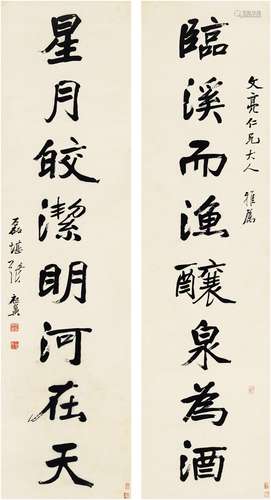 臨溪而漁釀泉為酒
文亮仁兄大人 雅屬
星月皎潔明河在天